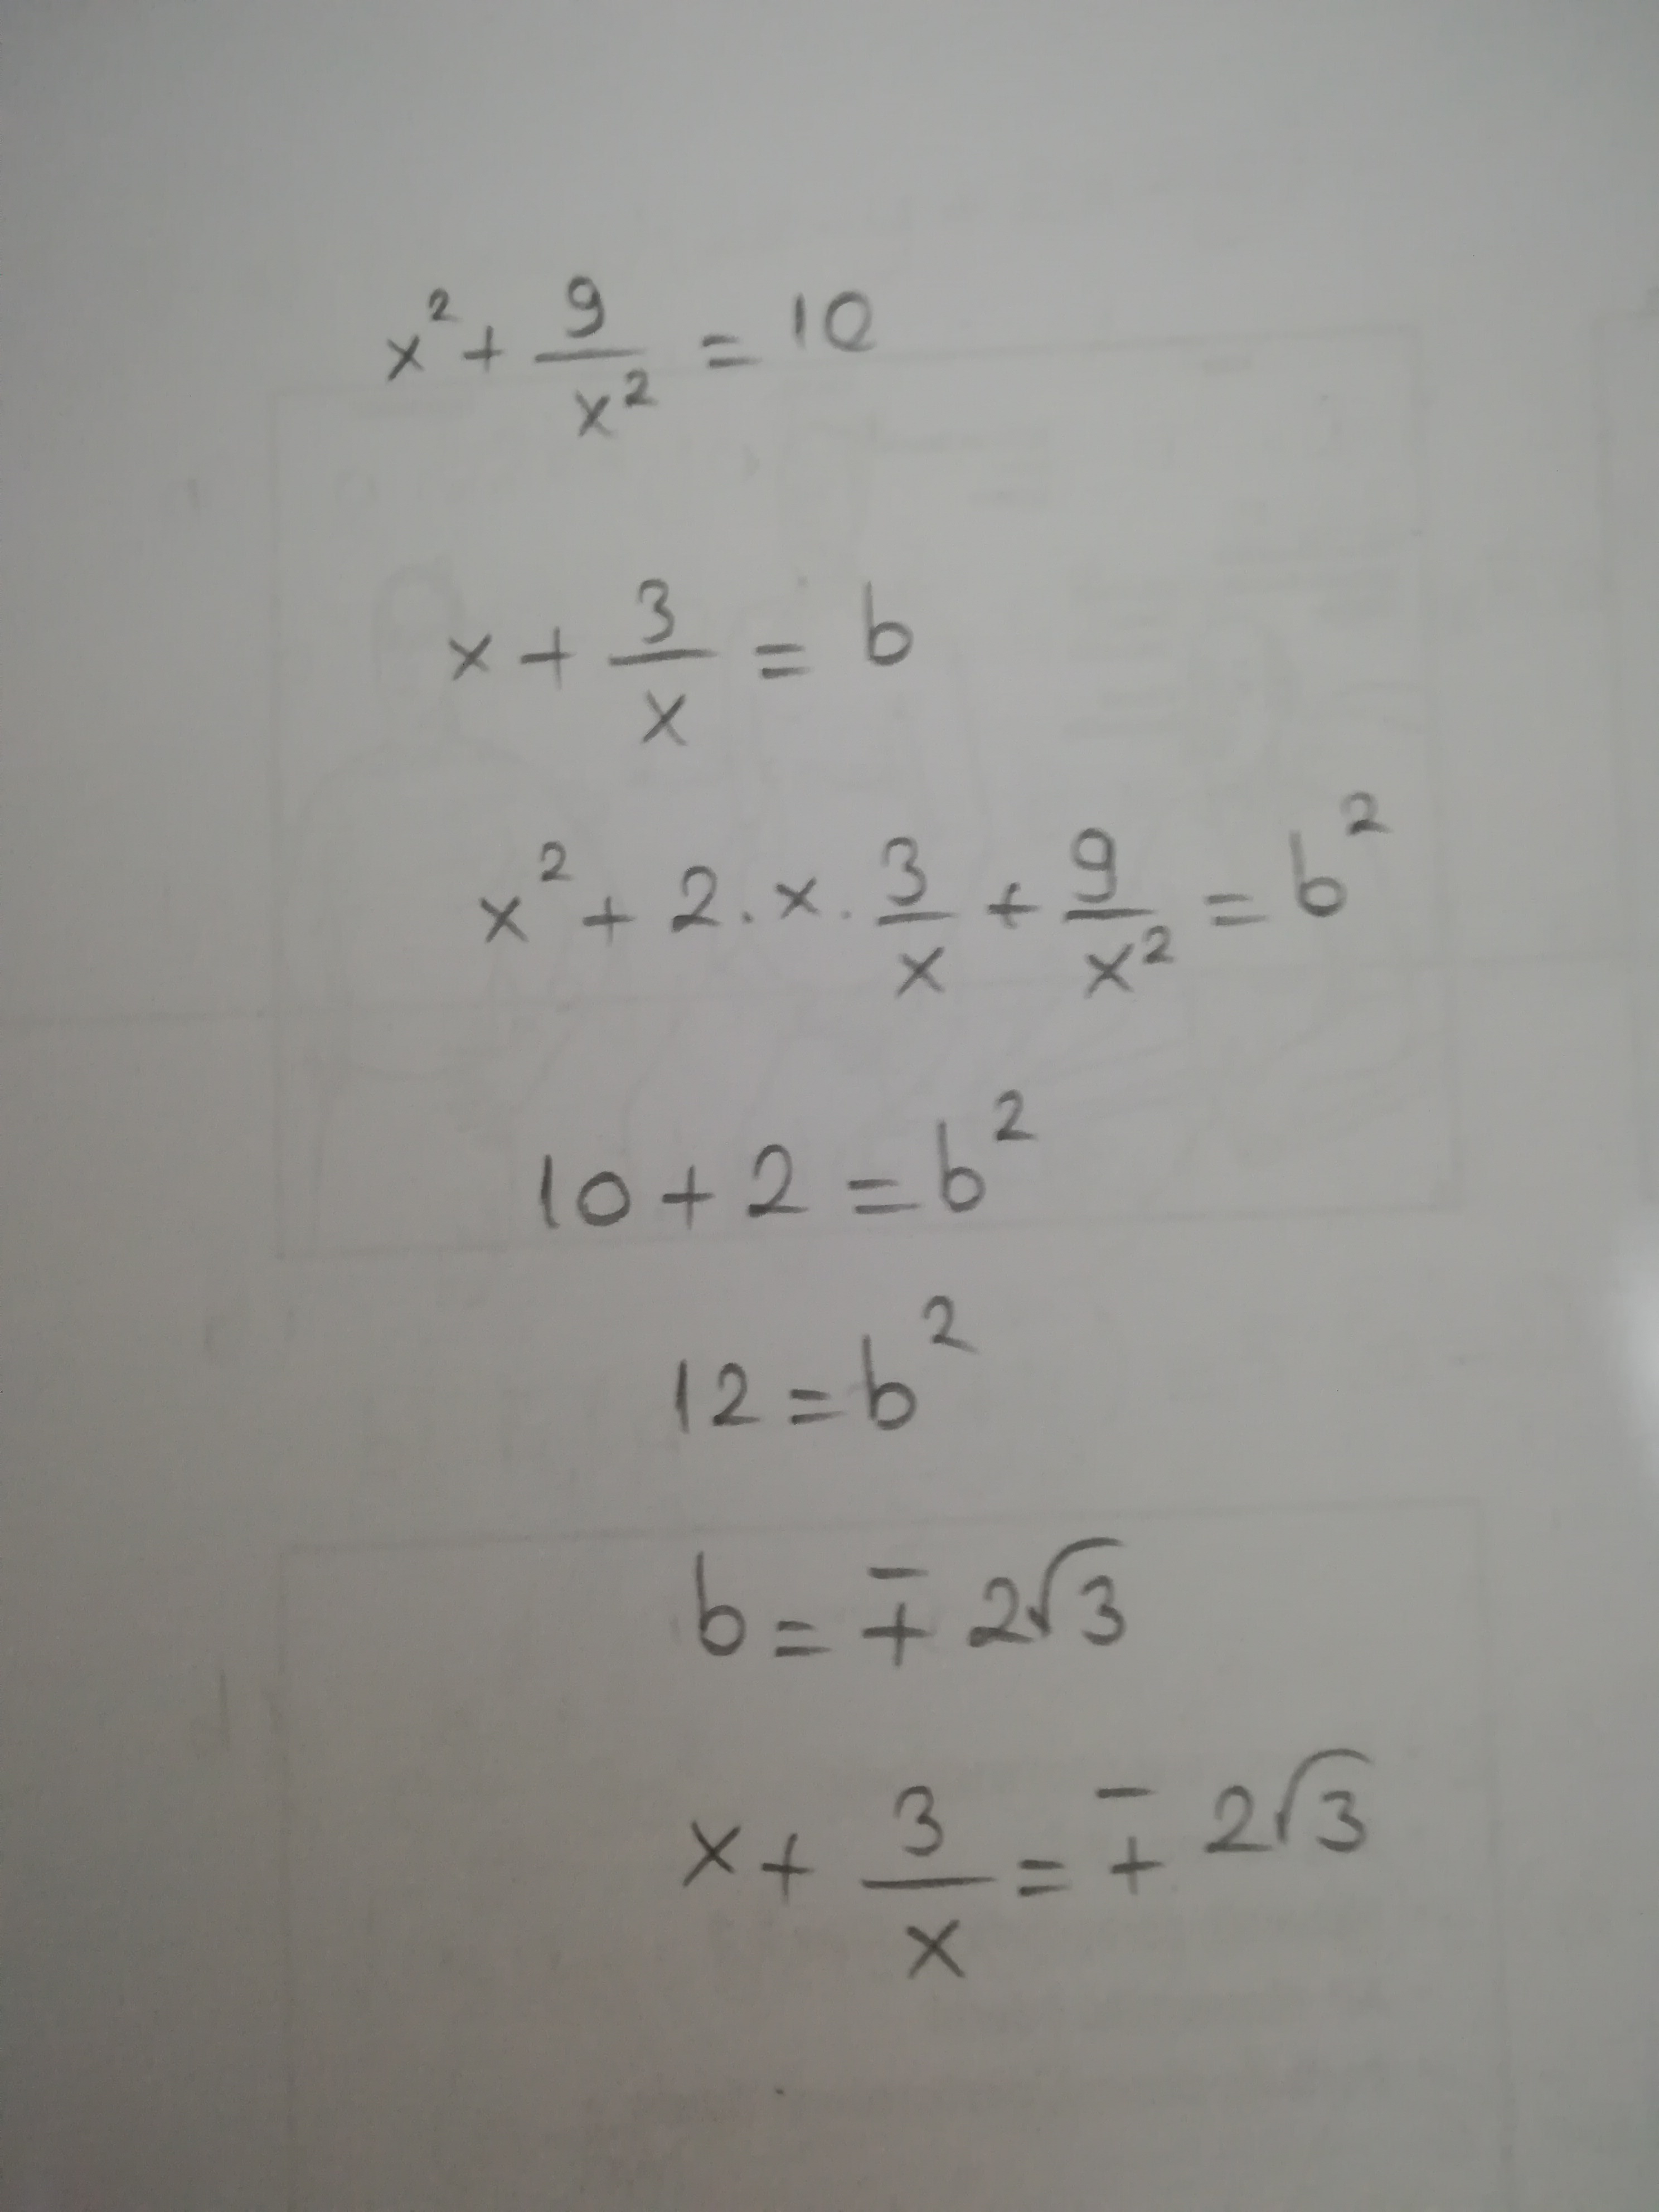 x² + 9/x² = 10
x + 3/x = b
x² + 2 . x . 3/x + 9/x² = b²
10 + 2 = b²
12 = b²
b = ∓ 2√3
x + 3/x = ∓ 2√3